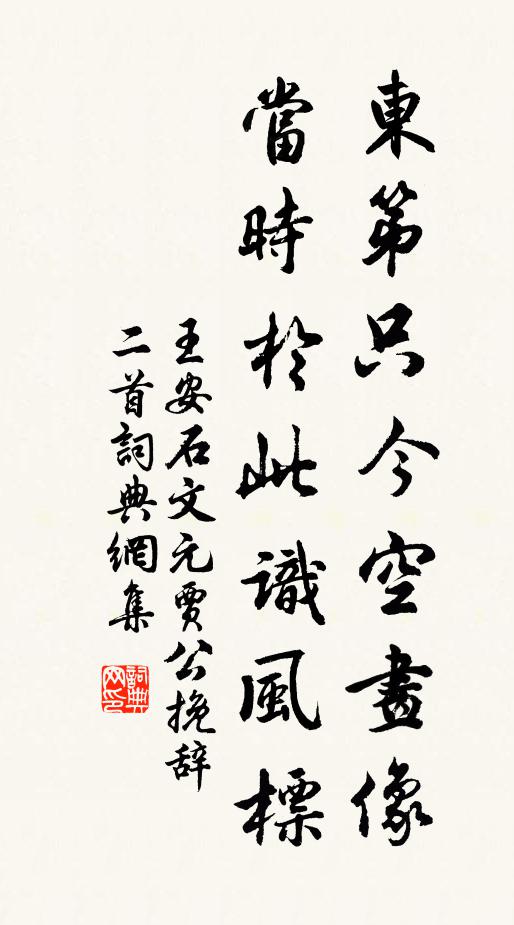 東第只今空畫像
當時於此識風標
王安石文元賈公挽辞
二首詞典網集
詞典
网印